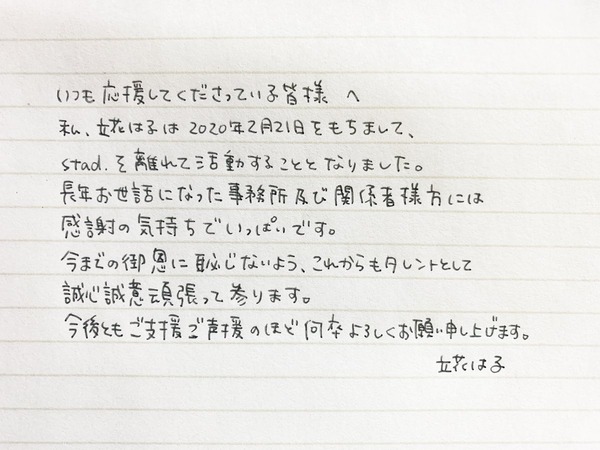 いつも応援してくださっている皆様へ
私、立花はるは2020年2月21日をもちまして、
stad.を離れて活動することとなりました。
長年お世話になった事務所及び関係者様方には
感謝の気持ちでいっぱいです。
今までの御恩に恥じないよう、これからもタレントとして
誠心誠意頑張って参ります。
今後ともご支援ご声援のほど何卒よろしくお願い申し上げます。
立花はる